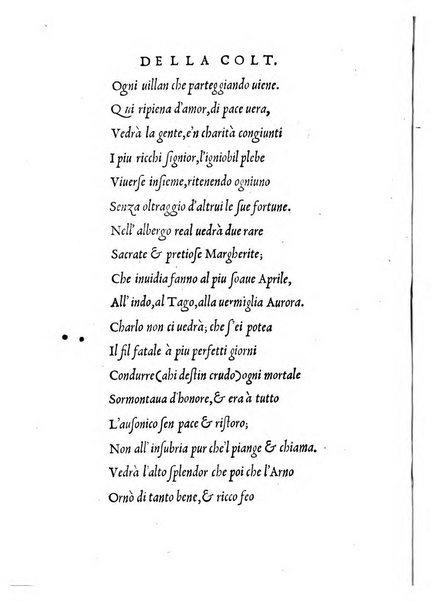 DELLA COLT.
Ogni uillan che parteggiando uiene.
Qui ripiena d'amor, di pace uera,
Vedrà la gente, e'n charità congiunti
I piu ricchi ſignior, l'igniobil plebe
Viuerſe inſieme, ritenendo ogniuno
Senza oltraggio d'altrui le ſue fortune.
Nell' albergo real uedrà due rare
Sacrate & pretioſe Margherite;
Che inuidia fanno al piu ſoaue Aprile,
All' indo, al Tago, alla uermiglia Aurora.
Charlo non ci uedrà; che ſ'ei potea
Il fil fatale à piu perfetti giorni
Condurre (ahi deſtin crudo) ogni mortale
Sormontaua d'honore, & era à tutto
L'auſonico ſen pace & riſtoro;
Non all' inſubria pur che'l piange & chiama.
Vedrà l'alto ſplendor che poi che l'Arno
Ornò di tanto bene, & ricco feo